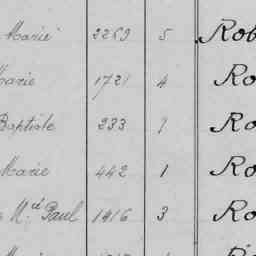 Marie 2259 5 Rob
Marie 1721 4 Ro
Baptiste 233 Ro
Marie 442 1 Ro
Md Paul 1416 3 Ro